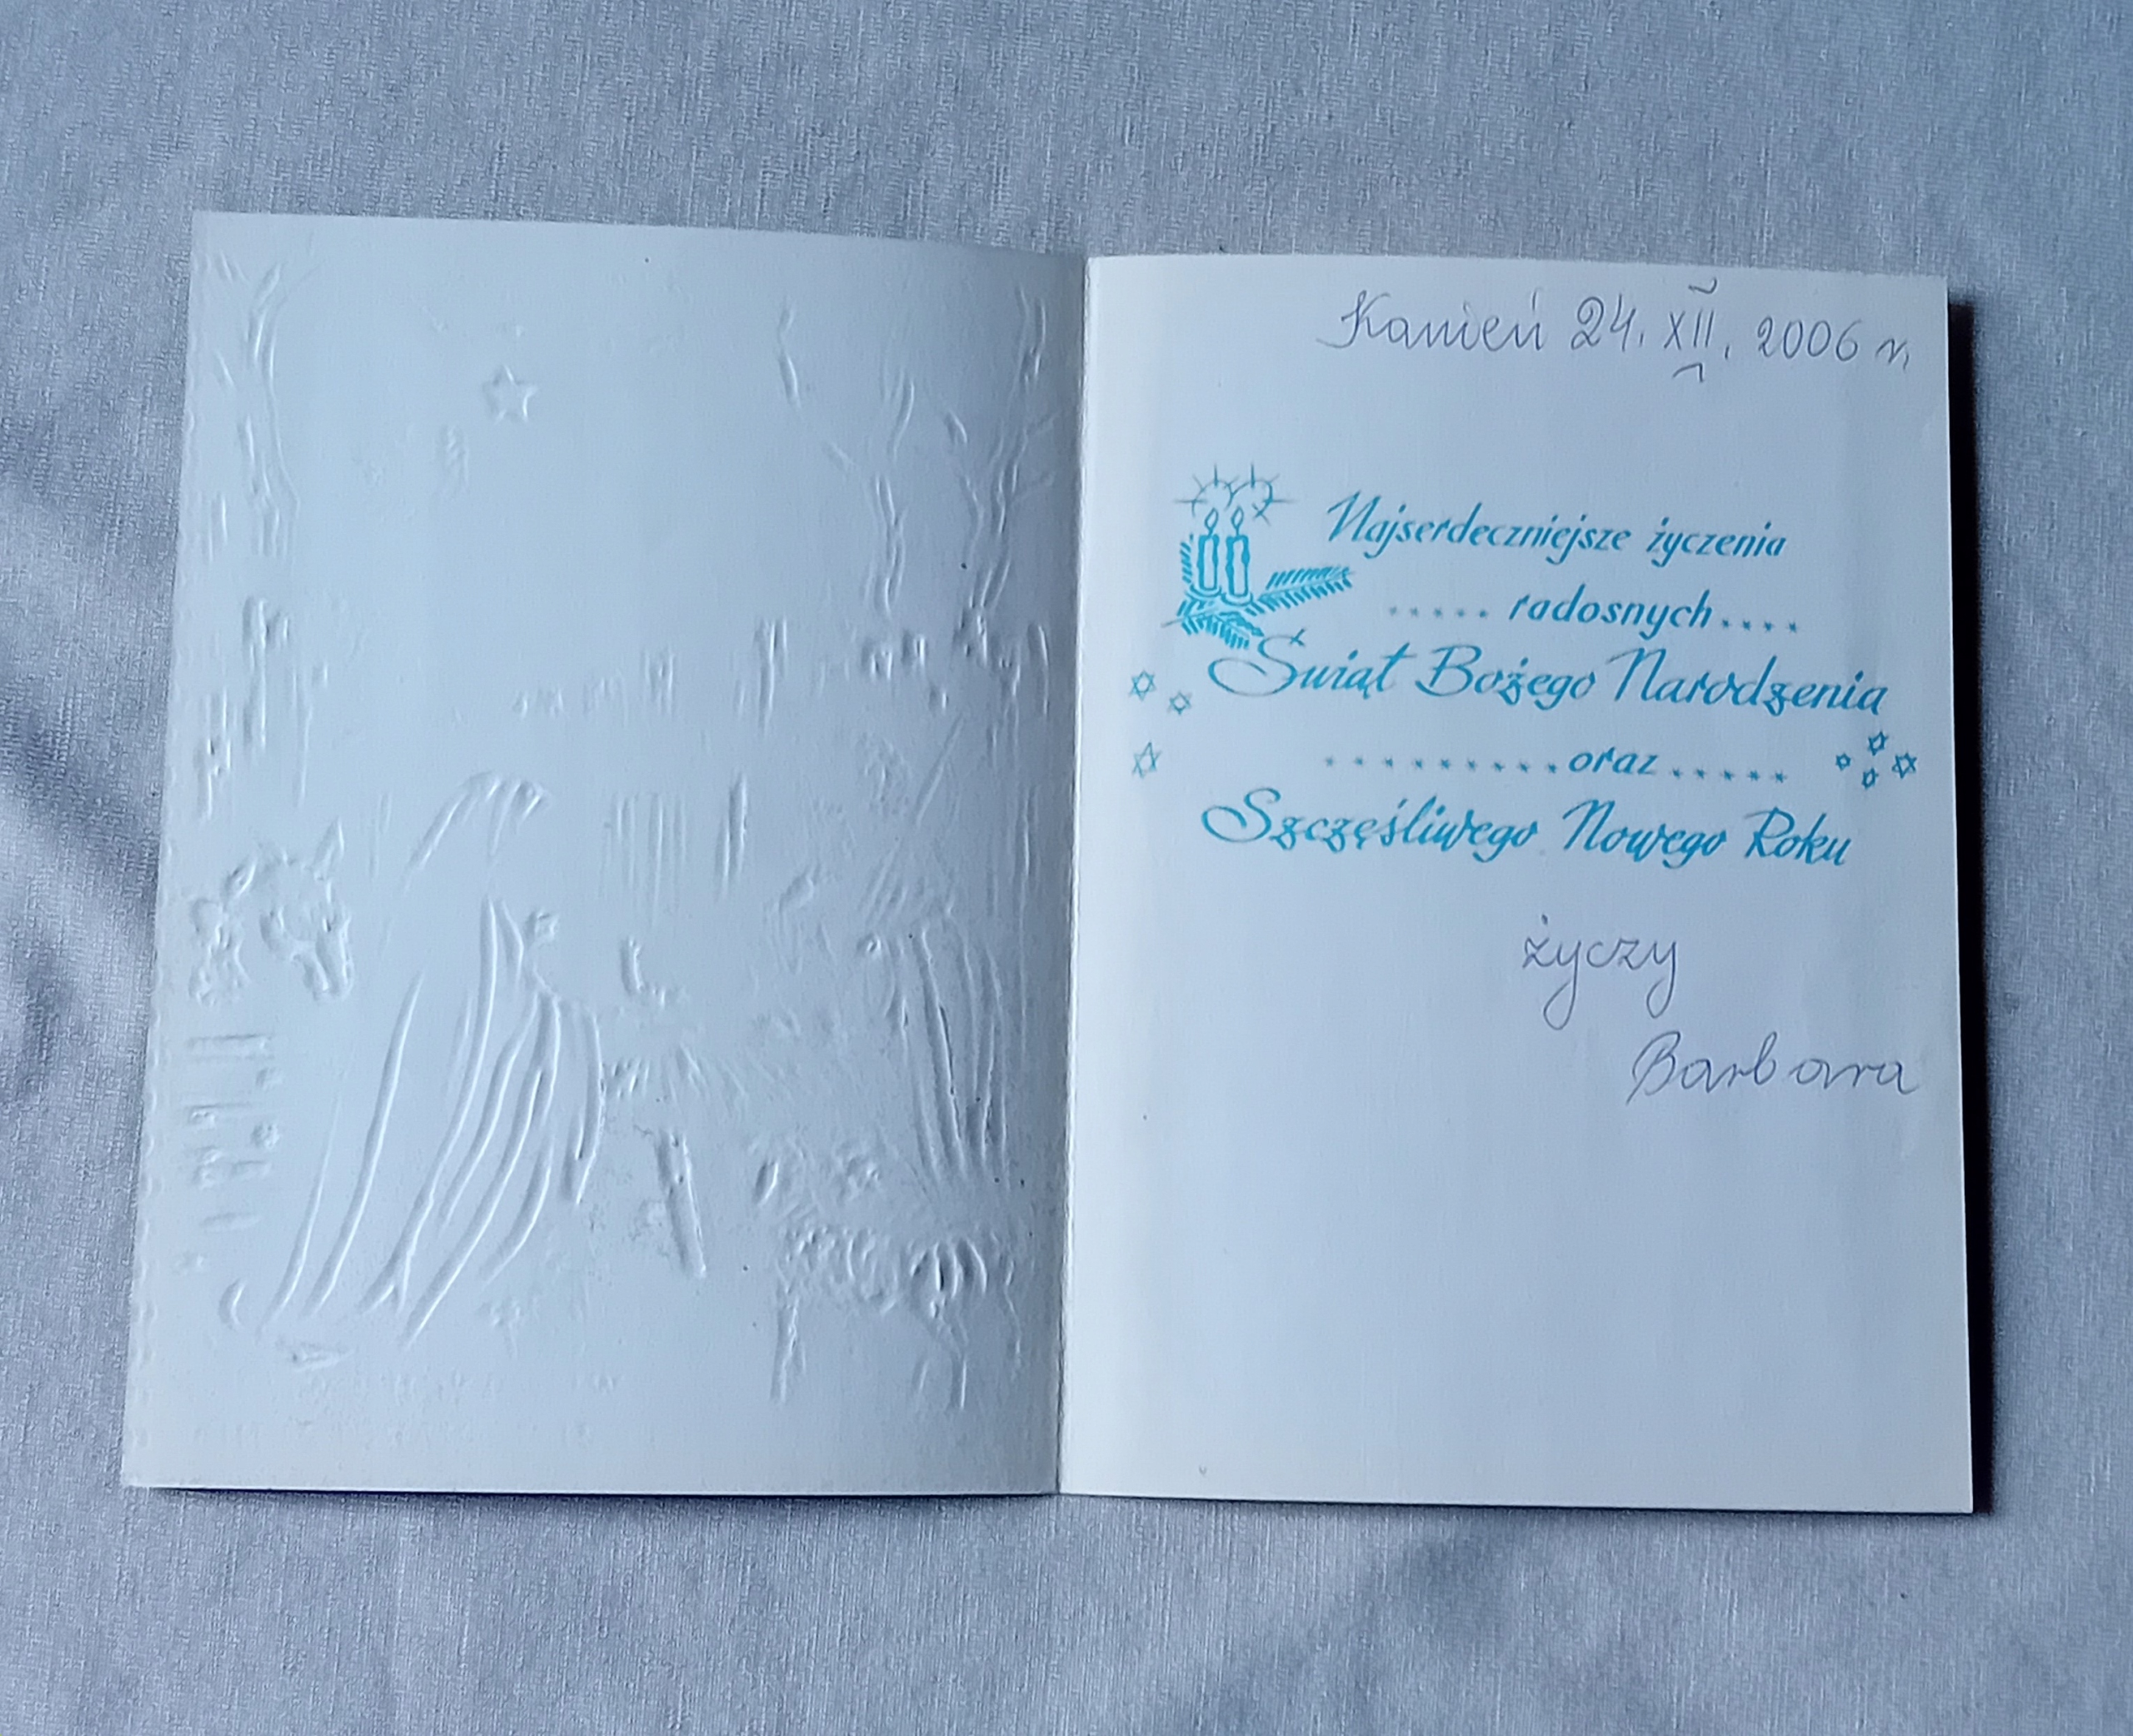 Kamień 24. XII. 2006 r.
Najserdeczniejsze życzenia
..... radosnych ....
Świąt Bożego Narodzenia
......... oraz .....
Szczęśliwego Nowego Roku
życzy
Barbara